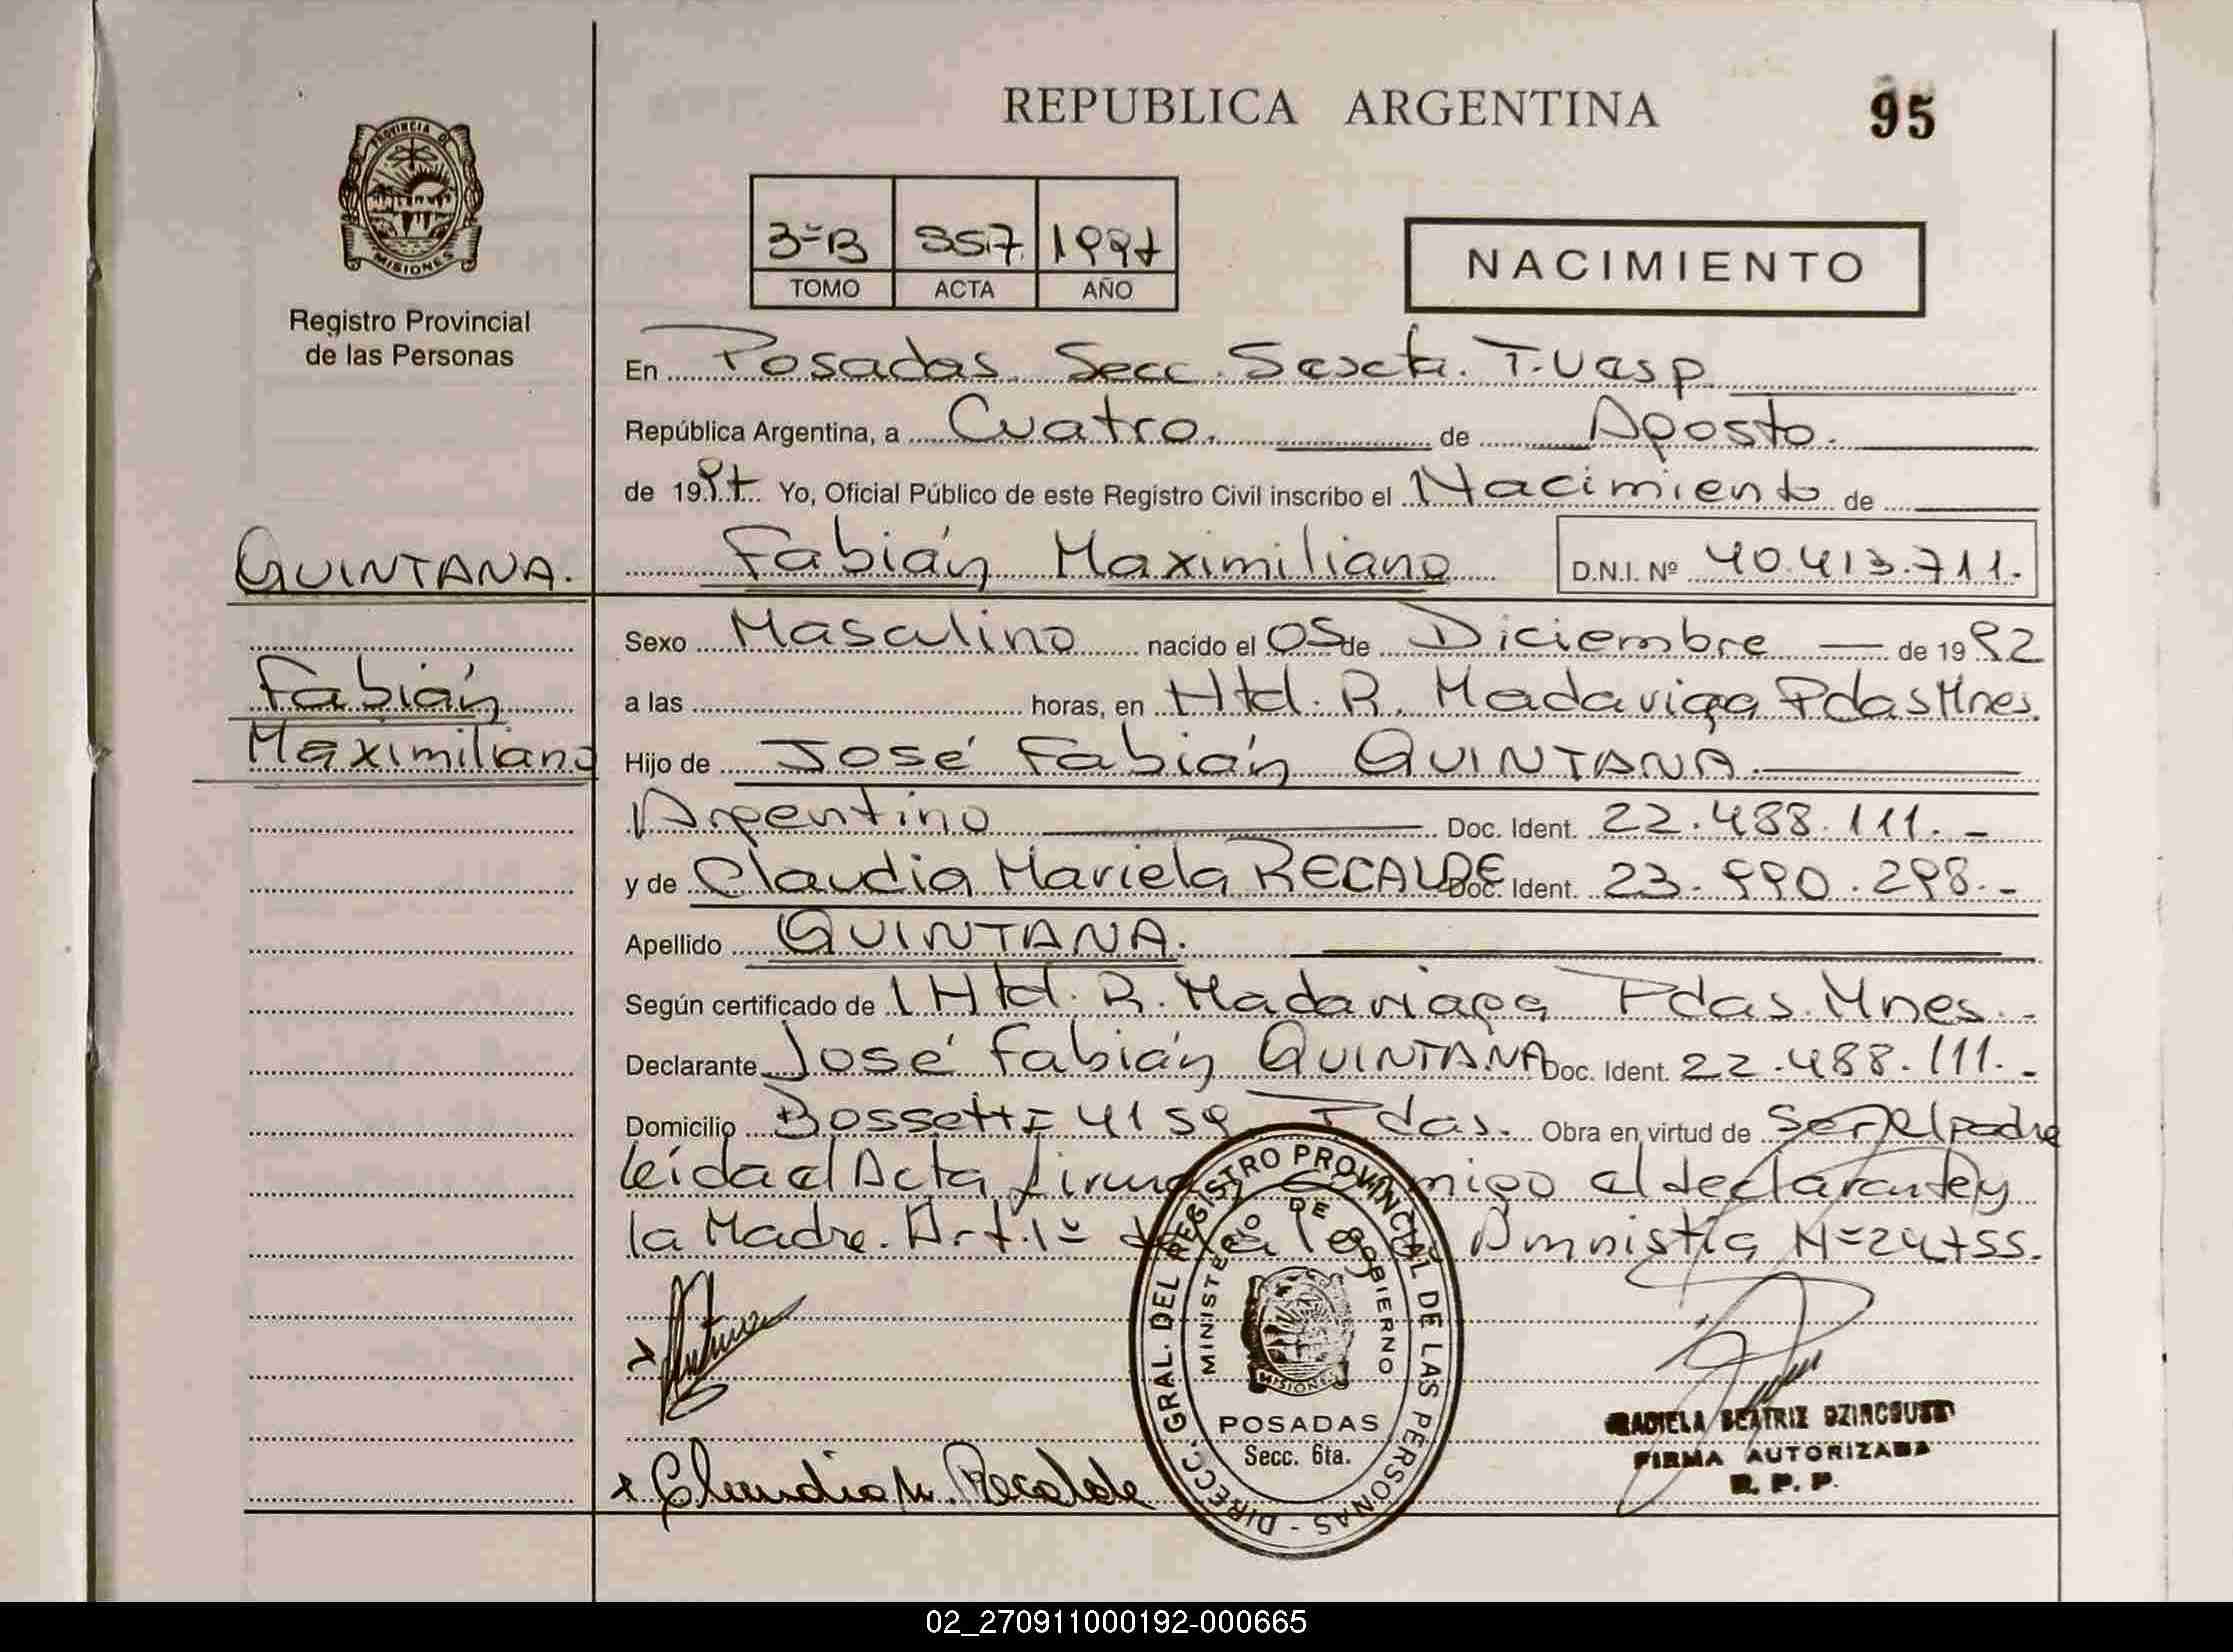 REPUBLICA ARGENTINA
95
PROVINCIA DE
MISIONES
Registro Provincial
de las Personas
3º B 357 1997
TOMO ACTA AÑO
NACIMIENTO
En Posadas Secc. Sexta. T. Vesp.
República Argentina, a Cuatro. de Agosto.
de 1997 Yo, Oficial Público de este Registro Civil inscribo el Nacimiento de
QUINTANA.
Fabián Maximiliano D.N.I. Nº 40.413.711.
Fabián
Maximiliano
Sexo Masculino nacido el 05 de Diciembre de 1992
a las horas, en Htal. R. Madariaga Pdas Mnes.
Hijo de José Fabián QUINTANA
Argentino Doc. Ident. 22.488.111.-
y de Claudia Mariela RECALDE Doc. Ident. 23.990.298.-
Apellido QUINTANA.
Según certificado de l Htal. R. Madariaga Pdas. Mnes.-
Declarante José Fabián QUINTANA Doc. Ident. 22.488.111.-
Domicilio Bossetti 4159 Pdas. Obra en virtud de ser el padre
leída el Acta firma el declarante y
la Madre. Art. 1º de la ley Amnistía Nº 24755.
Claudia M. Recalde
DIRECC. GRAL. DEL REGISTRO PROVINCIAL DE LAS PERSONAS -
MINISTERIO DE GOBIERNO
MISIONES
POSADAS
Secc. 6ta.
GRACIELA BEATRIZ
FIRMA AUTORIZADA
R. P. P.
02_270911000192-000665